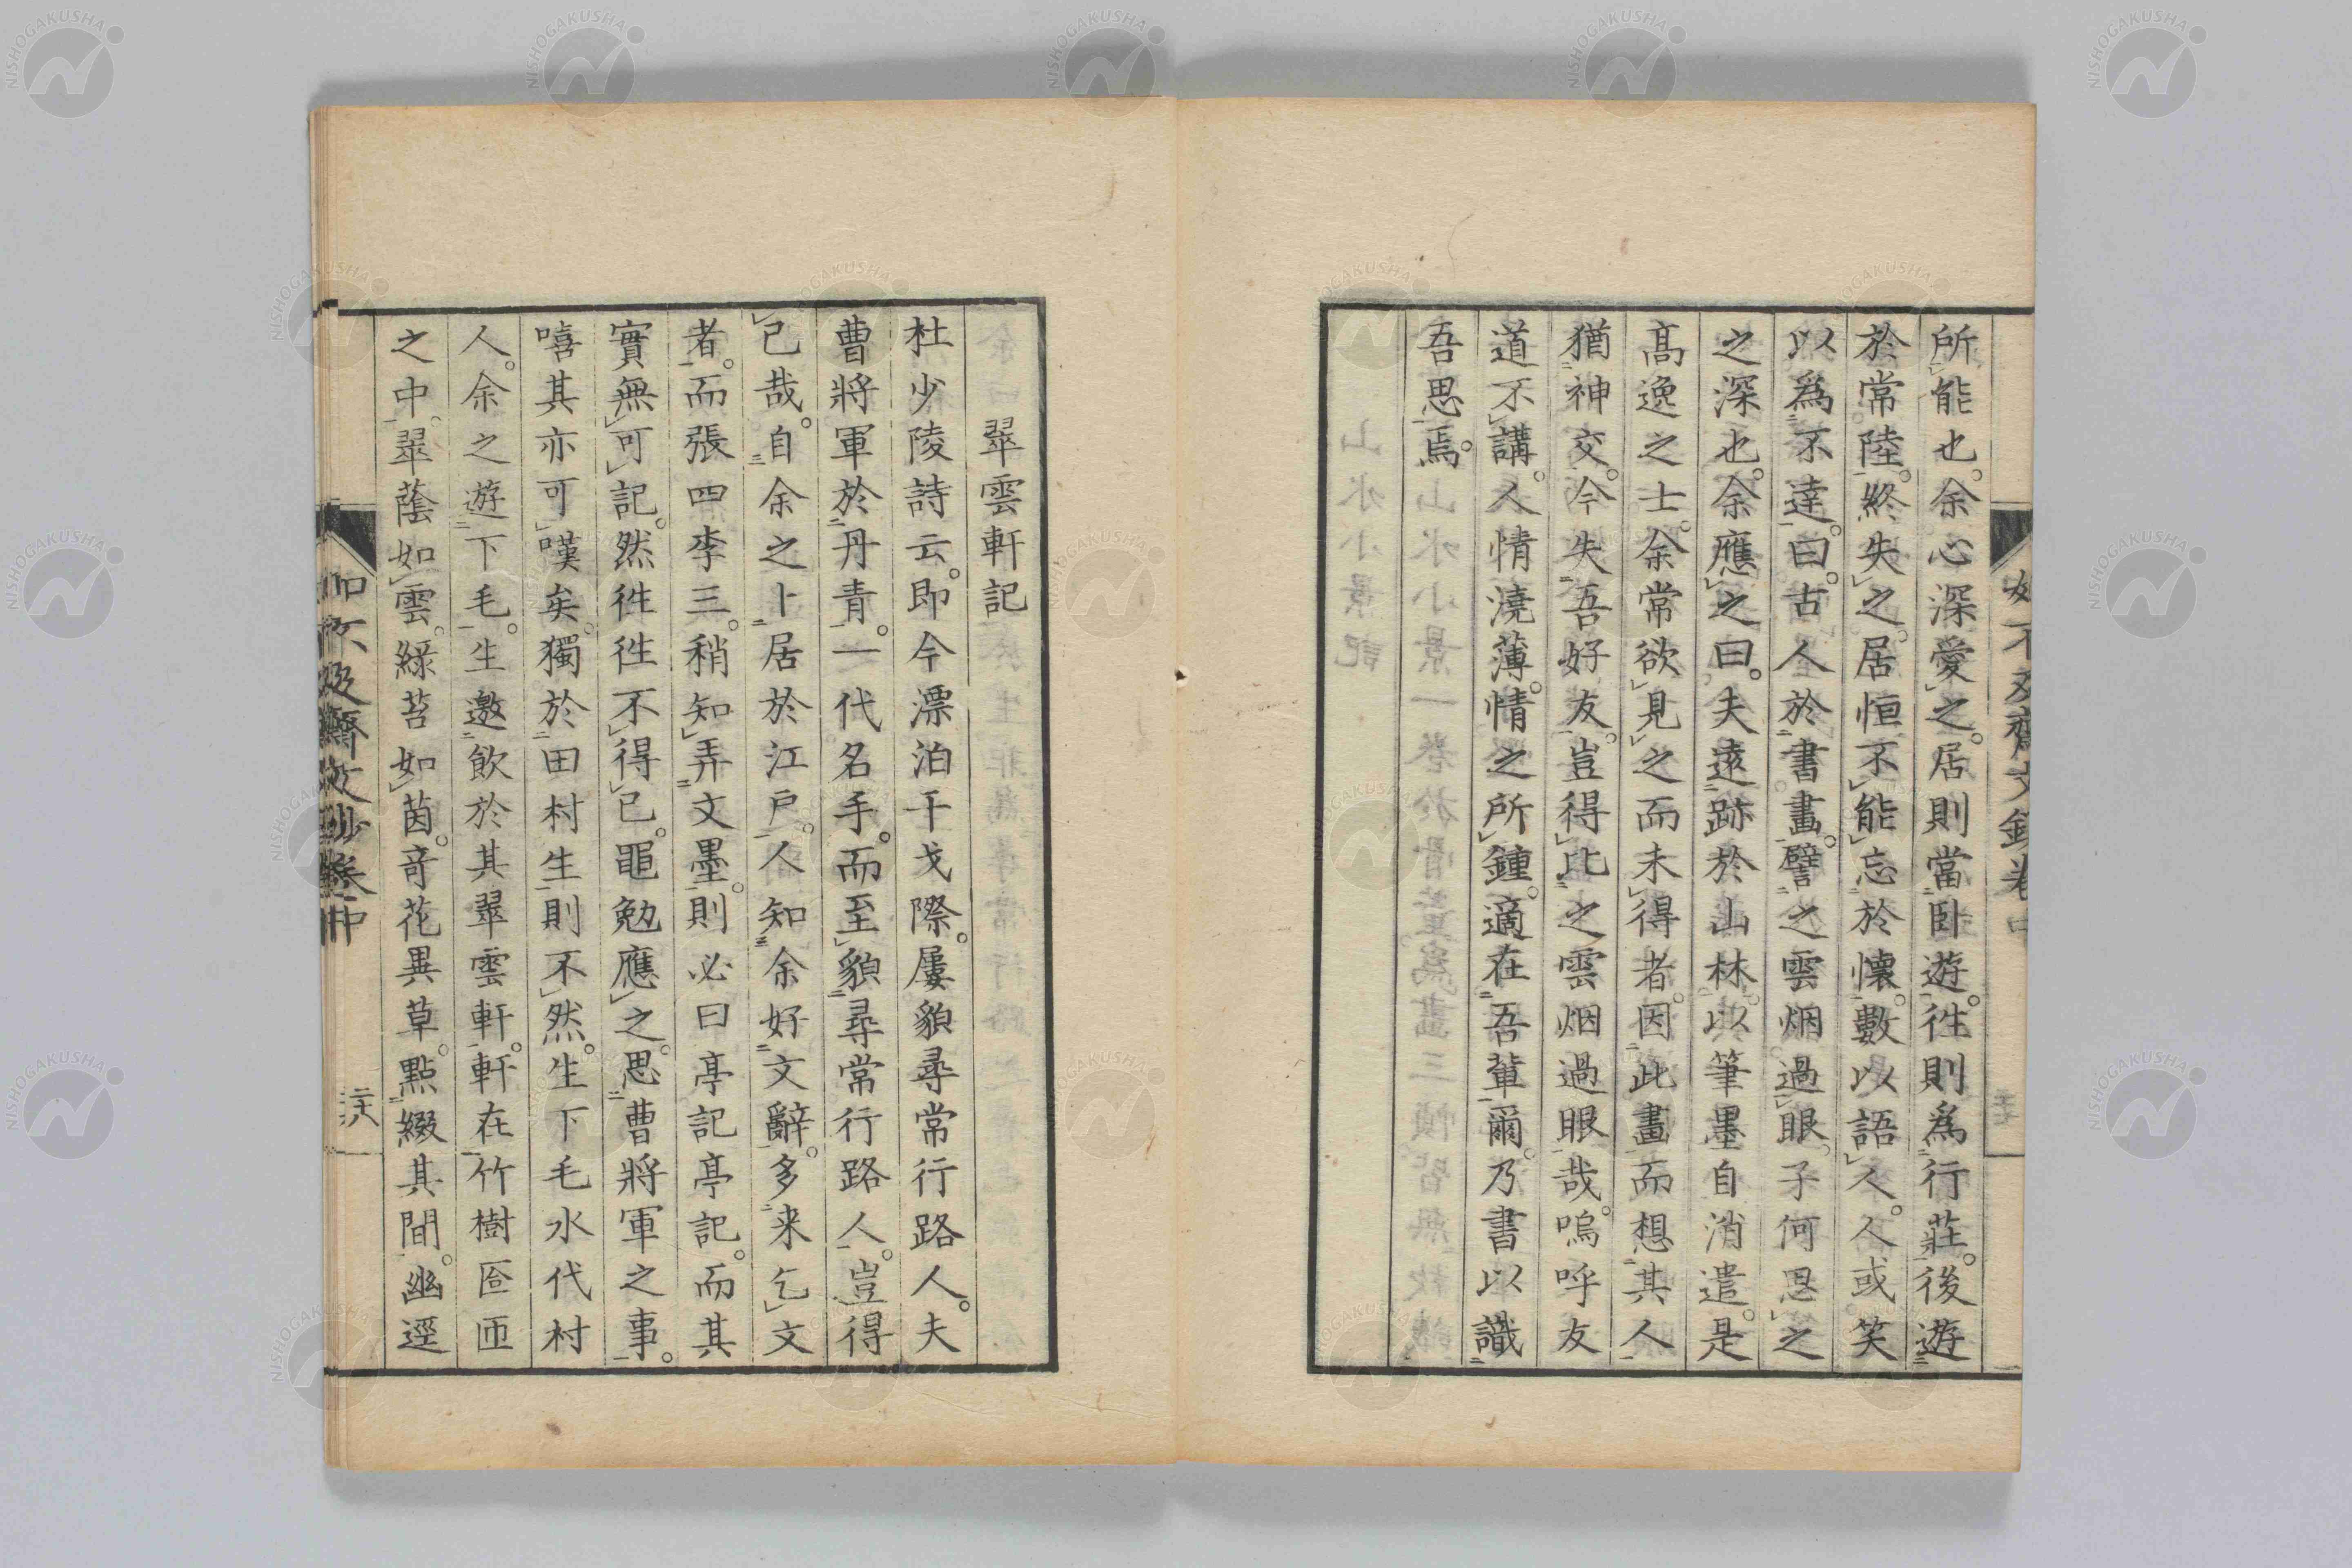 所能也。余心深愛之。居則當臥遊。徃則爲行莊。後遊
於常陸。終失之。居恒不能忘於懷。數以語人。人或笑
以爲不達。曰。古人於書畫。譬之雲烟過眼。子何思之
之深也。余應之曰。夫遠跡於山林。以筆墨自消遣。是
高逸之士。余常欲見之而未得者。因此畫而想其人
猶神交。今失吾好友。豈得比之雲烟過眼哉。嗚呼友
道不講。人情澆薄。情之所鍾。適在吾輩爾。乃書以識
吾思焉。
翠雲軒記
杜少陵詩云。即今漂泊干戈際。屢貌尋常行路人。夫
曹將軍於丹青。一代名手。而至貌尋常行路人。豈得
已哉。自余之卜居於江戸。人知余好文辭。多来乞文
者。而張四李三。稍知弄文墨。則必曰亭記亭記。而其
實無可記。然徃徃不得已。黽勉應之。思曹將軍之事。
嘻其亦可嘆矣。獨於田村生則不然。生下毛水代村
人。余之遊下毛。生邀飲於其翠雲軒。軒在竹樹匼匝
之中。翠蔭如雲。綠苔如茵。奇花異草。點綴其間。幽逕
如不及齋文鈔卷中
二十六
NISHOGAKUSHA